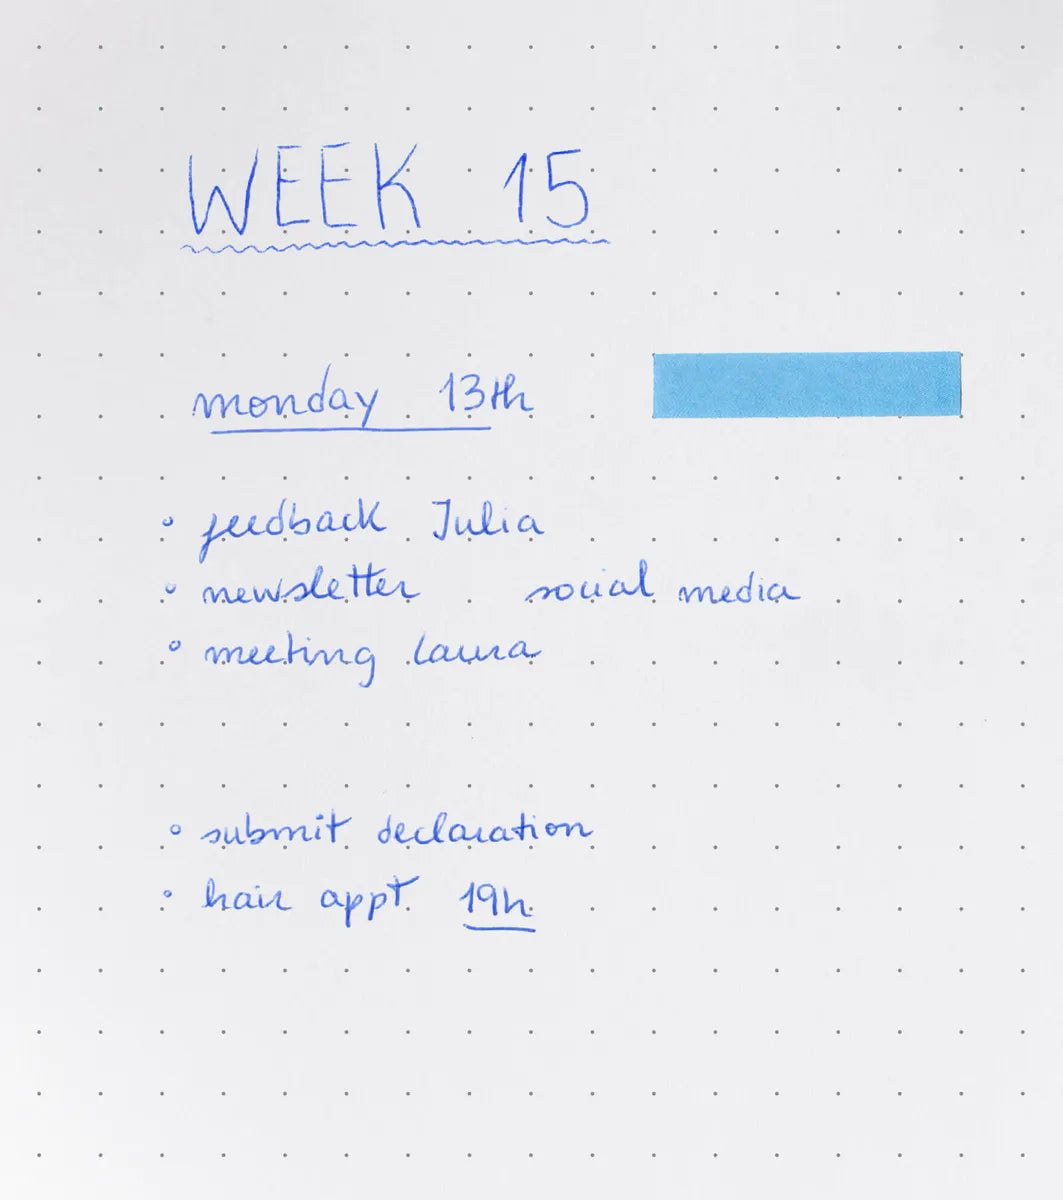 WEEK 15
monday 13th
° feedback Julia
° newsletter social media
° meeting Laura
° submit declaration
° hair appt 19h